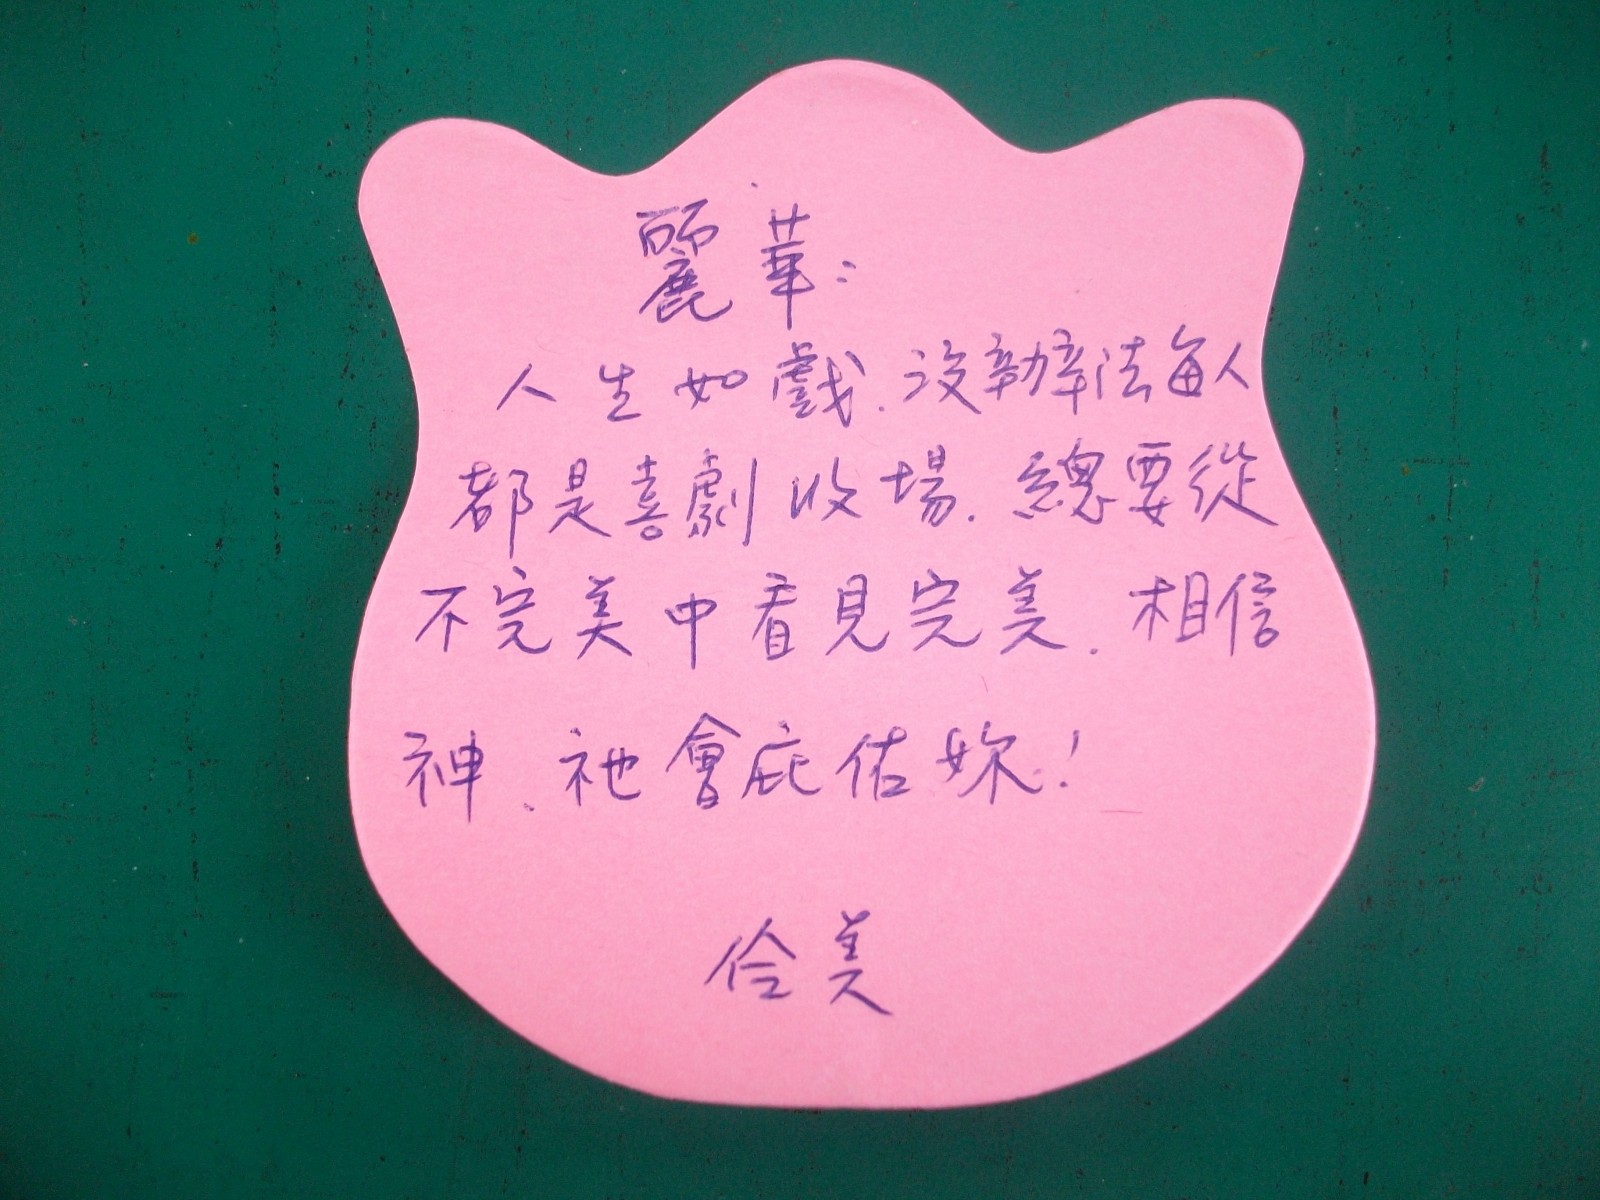 麗華:
人生如戲.沒辦法每人
都是喜劇收場.總要從
不完美中看見完美.相信
神、祂會庇佑妳!
佮美